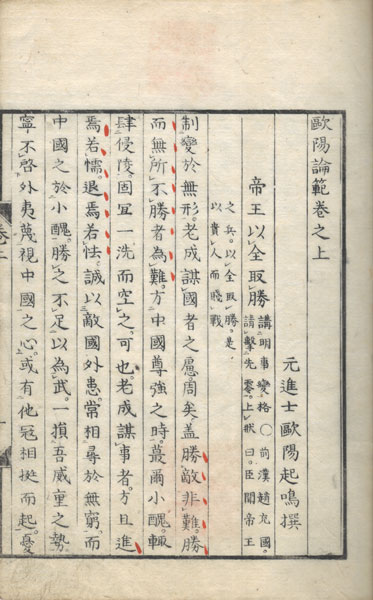 歐陽論範卷之上
元進士歐陽起鳴撰
帝王以全取勝 講明事變格 ○前漢趙充國
請擊先零上狀曰臣聞帝王
之兵以全取勝是
以貴人而賤戰
制變於無形老成謀國者之慮周矣蓋勝敵非難勝
而無所不勝者為難方中國尊強之時蕞爾小醜輒
肆侵陵固宜一洗而空之可也老成謀事者方且進
焉若懦退焉若怯誠以敵國外患常相尋於無窮而
中國之於小醜勝之不足以為武一損吾威重之勢
寧不啓外夷蔑視中國之心或有他冦相挺而起憂